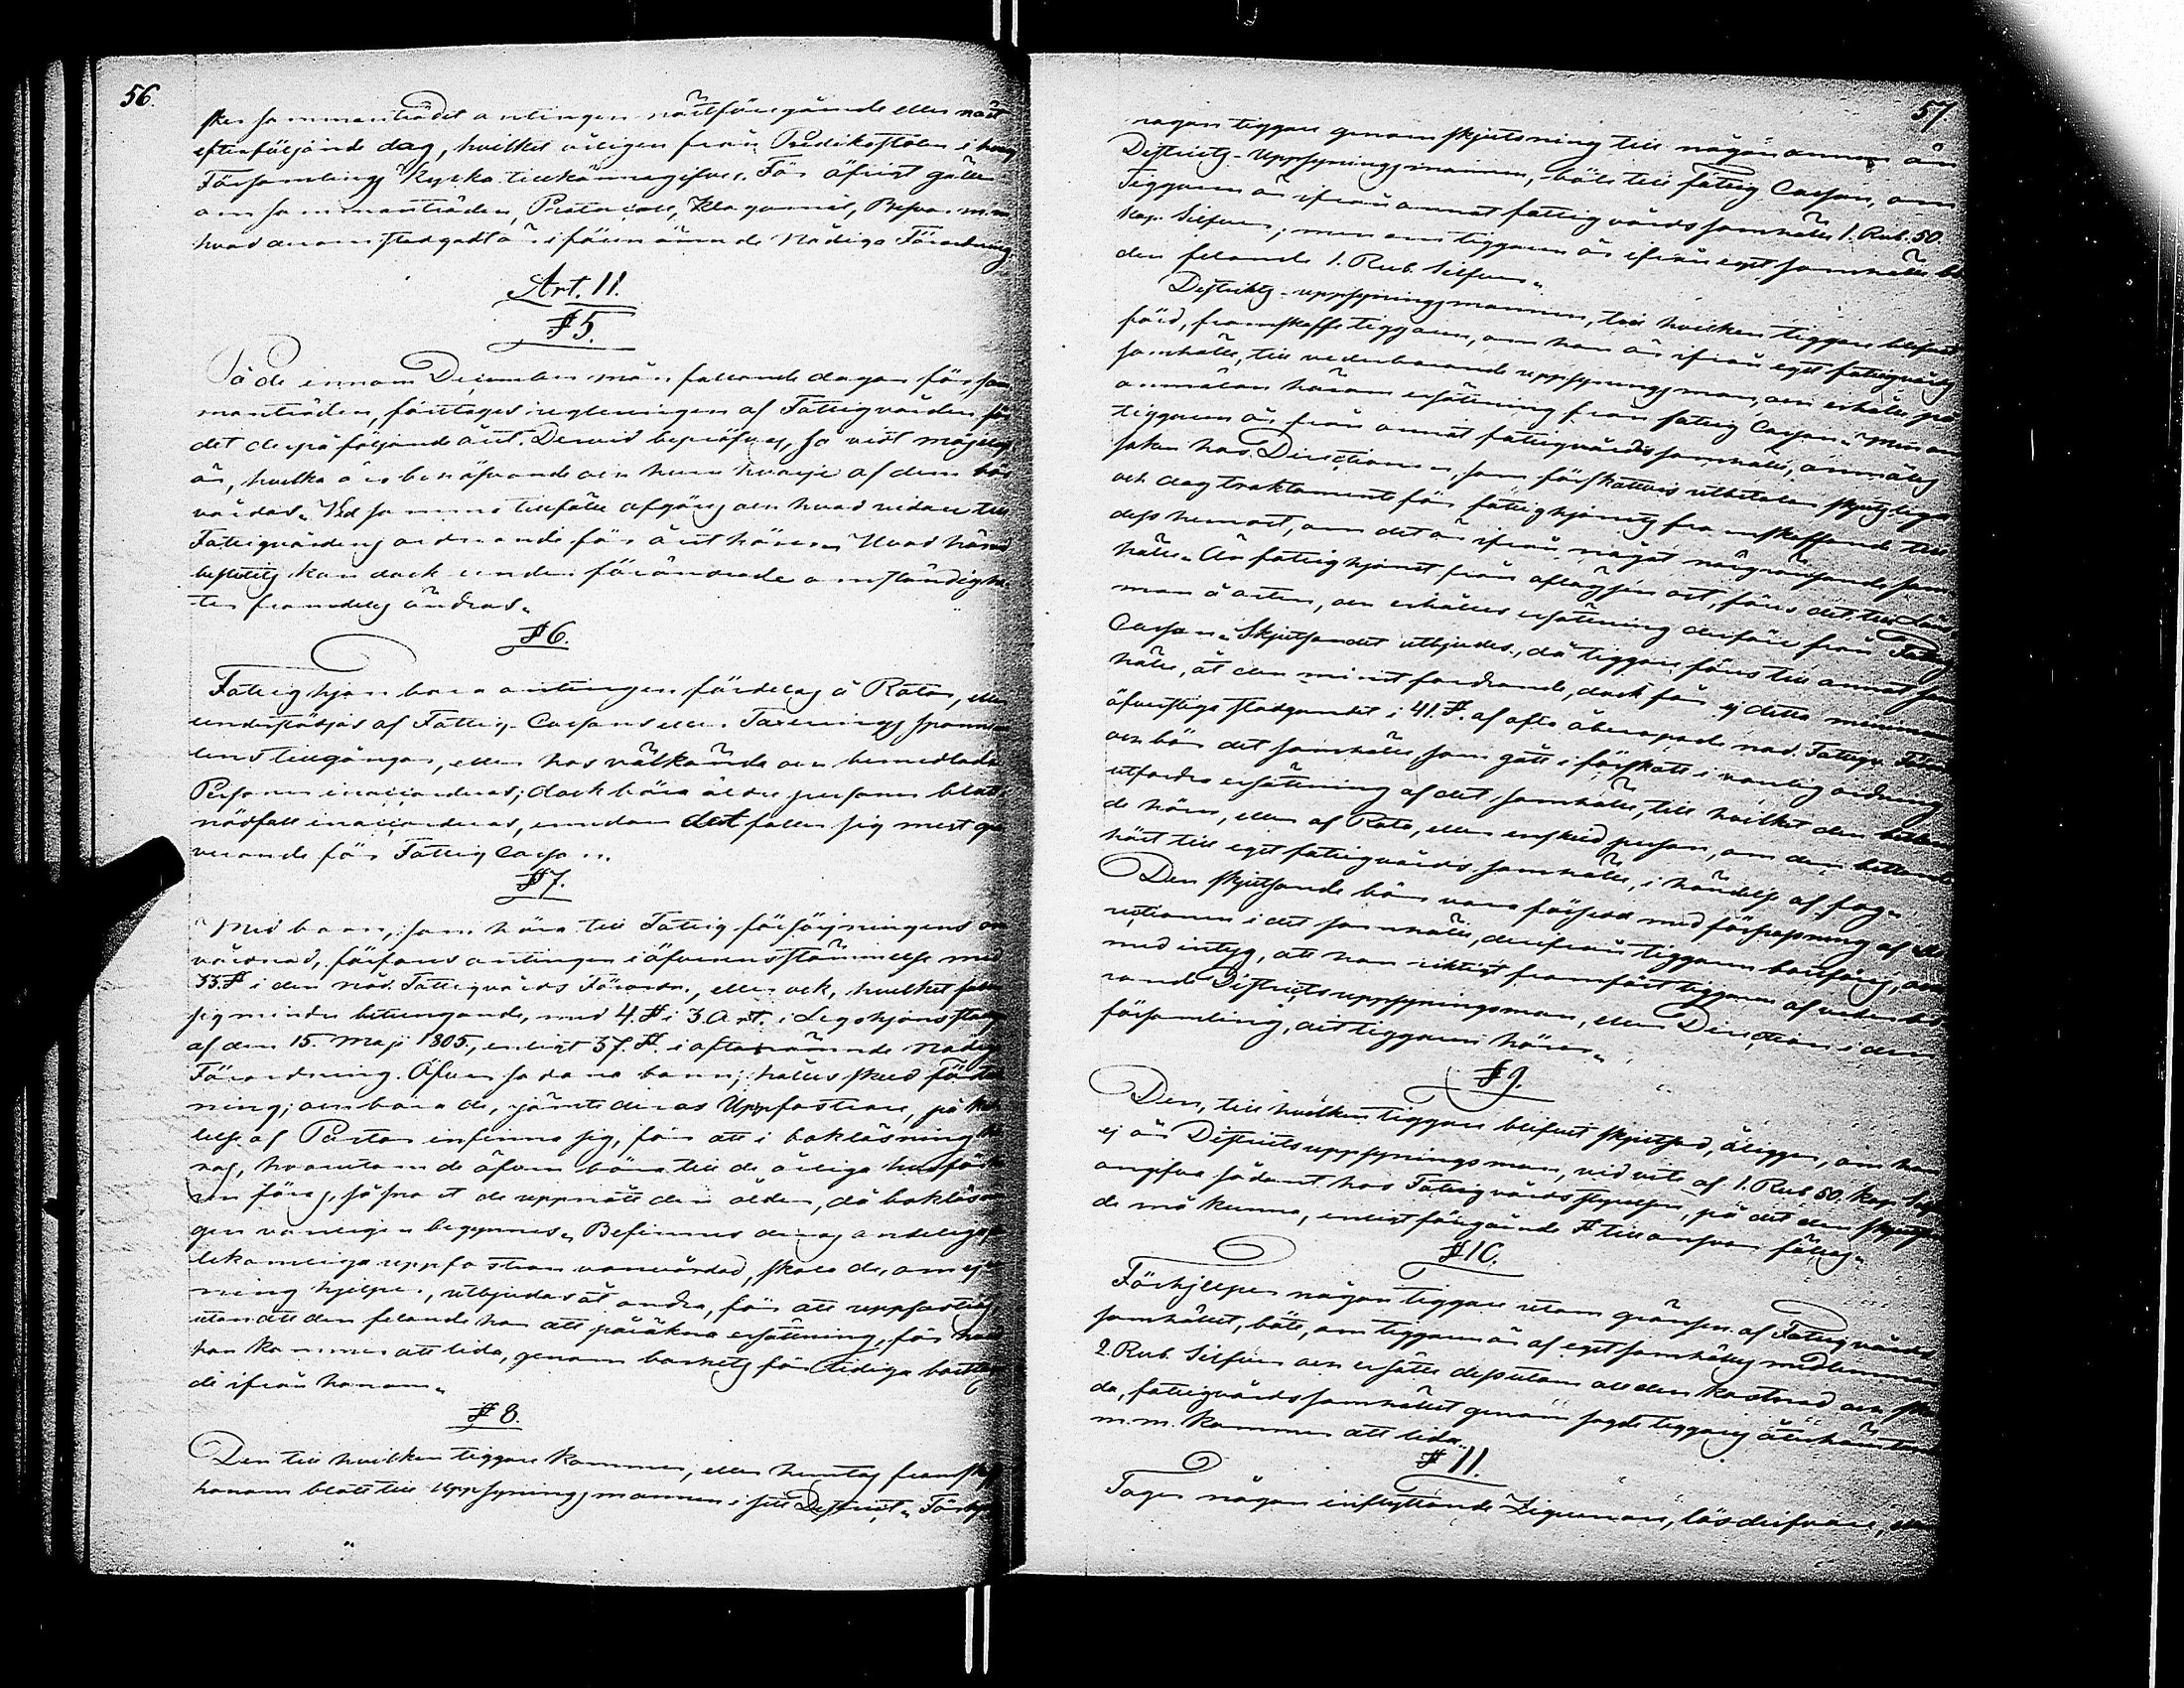 56.
sker sammanträdet antingen nästföregående eller näst
efterföljande dag, hvilket årligen från Predikostolen i hvarj
Församlings Kyrka tillkännagifves. För öfrigt gäller
om sammanträden, Protocoll, Klagomål, Besvär m.m.
hvad derom stadgadt är i förenämnde Nådiga Förordning.
Art. 11.
§ 5.
På de innom December mån. fallande dagar för sam
manträden, företages regleringen af Fattigvården för
det derpå följande året. Dervid bepröfvas, så vidt möjeligt
är, hvilka äro behöfvande och huru hvarje af dem bör
vårdas. Ved samma tillfälle afgöres och hvad vidare till
Fattigvårdens ordnande för året hörer. Hvad härvid
beslutits kan dock under förändrade omständighe
ter framdeles ändras.
§ 6.
Fattighjon böra antingen fördelas å Rotar, eller
understödjas af Fattig-Cassans eller Taxerings spannmå
lens tillgångar, eller hos välkände och bemedlade
Personer inaccorderas; dock böra äldre personer blott i
nödfall inaccorderas, emedan det faller sig mest gra
verande för Fattig Cassan.
§ 7.
Med barn, som höra till Fattigförsörjningens om
vårdnad, förfares antingen i öfverensstämmelse med
33.§ i den nåd. Fattigvårds Förordn., eller ock, hvilket faller
sig mindre betungande, med 4.§ i 3. Art. i Legohjonsstadga
af den 15. Maji 1805, enligt 37.§. i oftanämnde Nådiga
Förordning. Öfver sådana barn, hålles skild förteck
ning; och böra de, jämte deras Uppfostrare, på kal
lelse af Pastor infinna sig, för att i bokläsning hö
ras, hvarutom de äfven böra till de årliga husförhö
ren föras, så snart de uppnått den ålder, då bokläsnin
gen vanligen begynnes. Befinnes deras andeliga
lekamliga uppfostran vanvårdad, skola de, om ej var
ning hjelper, utbjudas åt andra, för att uppfostras,
utan att den felande har att påräkna ersättning, för hvad
han kommer att lida, genom barnets för tidiga borttagan
de ifrån honom.
§ 8.
Den till hvilken tiggare kommer, eller hemtas framskaffe
honom blott till Uppsyningsmannen i sitt District. Förbjr
57.
nagon tiggare genom skjutsning till någon annan än
Districts-Uppsyningsmannen, böte till Fattig Cassan, om
Tiggaren är ifrån annat fattigvårdssamhälle 1. Rub. 50
kop. Silfver; men om tiggaren är ifrån eget samhälle bö
den felande 1. Rub. Silfver.
Districts-uppsyningsmannen, till hvilken tiggare blifvit
förd, framskaffe tiggaren, om han är ifrån eget fattigvårds
samhälle, till vederbörande uppsyningsman, och erhålle på
anmälan härom ersättning från fattig Cassan. Men om
tiggaren är från annat fattigvårdssamhälle, anmäles
saken hos Directionen, som förskottvis utbetalar skjutslega
och dagtraktamente för fattighjonets framskaffande till
dess hemort, om det är ifrån något närgränsande sam
hälle. Är fattighjonet från aflägsen ort, föres det till Läns
man å orten, och erhålles ersättning derföre från Fattig
Cassan. Skjutsandet utbjudes, då tiggare föres till annat sam
hälle, åt den minst fordrande, dock får ej detta minimum
öfverstiga stadgandet i 41.§. af ofta åberopade nåd. Fattigv. Förordn
och bör det samhälle, som gått i förskott i vanlig ordning
utfordra ersättning af det samhälle, till hvilket den bettlan
de hörer, eller af Rote, eller enskild person, om den bettlande
hört till eget fattigvårds samhälle, i händelse af frag.
Den skjutsande bör vara försedd med förpassning af Di
rectionen i det samhälle, derifrån tiggaren bortföres, och
med intyg, att han riktigt framfört tiggaren af vederbö
rande Districtsuppsyningsman, eller Direction i den
församling, dit tiggaren hörer.
§ 9.
Den, till hvilken tiggare blifvit skjutsad, åligger, om han
ej är Districtsuppsyningsman, vid vite af 1. Rub 50. kop. Silf
angifva sådant hos Fattigvårdsstyrelsen, på det den skjutsan
de må kunna, enligt föregående § till ansvar fällas.
§ 10.
Förhjelper någon tiggare utom gränsen af Fattigvårds
samhället, böte, om tiggaren är af eget samhälles medlemmar
2. Rub. Silfver och ersätte dessutom all den kostnad och ska
da, fattigvårdssamhället genom sagde tiggares återhämtande
m.m. kommer att lida.
§ 11.
Tager någon inflyttande Zigenare, lösdrifvare, eller